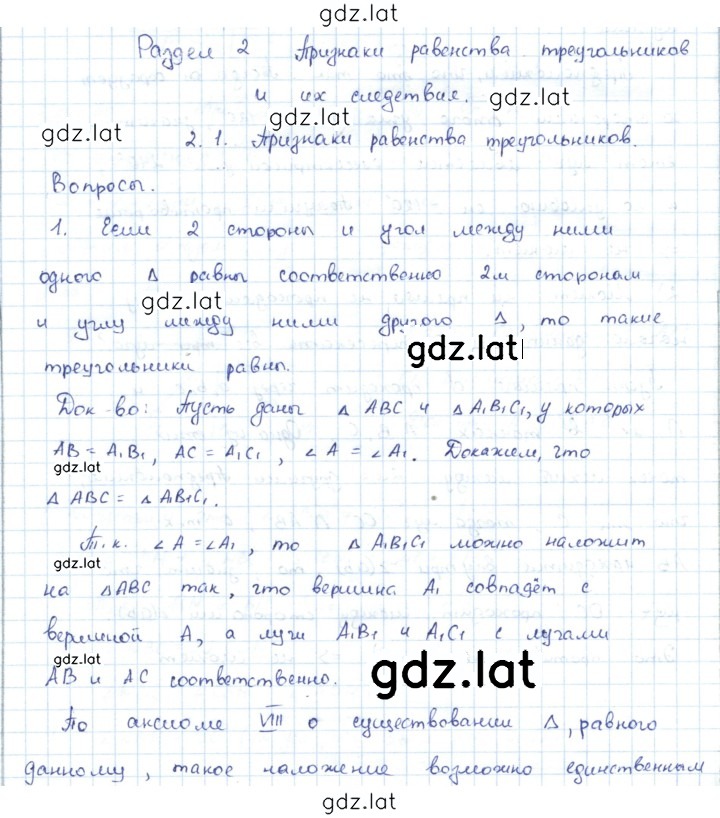 gdz.lat
Раздел 2 Признаки равенства треугольников
и их следствия. gdz.lat
gdz.lat gdz.lat
2.1. Признаки равенства треугольников.
Вопросы.
1. Если 2 стороны и угол между ними
одного Δ равны соответственно 2м сторонам
gdz.lat
и углу между ними другого Δ, то такие
gdz.lat
треугольники равны.
Док-во: Пусть даны Δ ABC и Δ A₁B₁C₁, у которых
AB = A₁B₁, AC = A₁C₁, ∠A = ∠A₁. Докажем, что
gdz.lat
Δ ABC = Δ A₁B₁C₁.
Т.к. ∠A = ∠A₁, то Δ A₁B₁C₁ можно наложит
gdz.lat
на ΔABC так, что вершина A₁ совпадёт с
вершиной A, а лучи A₁B₁ и A₁C₁ с лучами
gdz.lat gdz.lat
AB и AC соответственно.
По аксиоме VIII о существовании Δ, равного
данному, такое наложение возможно единственным
gdz.lat